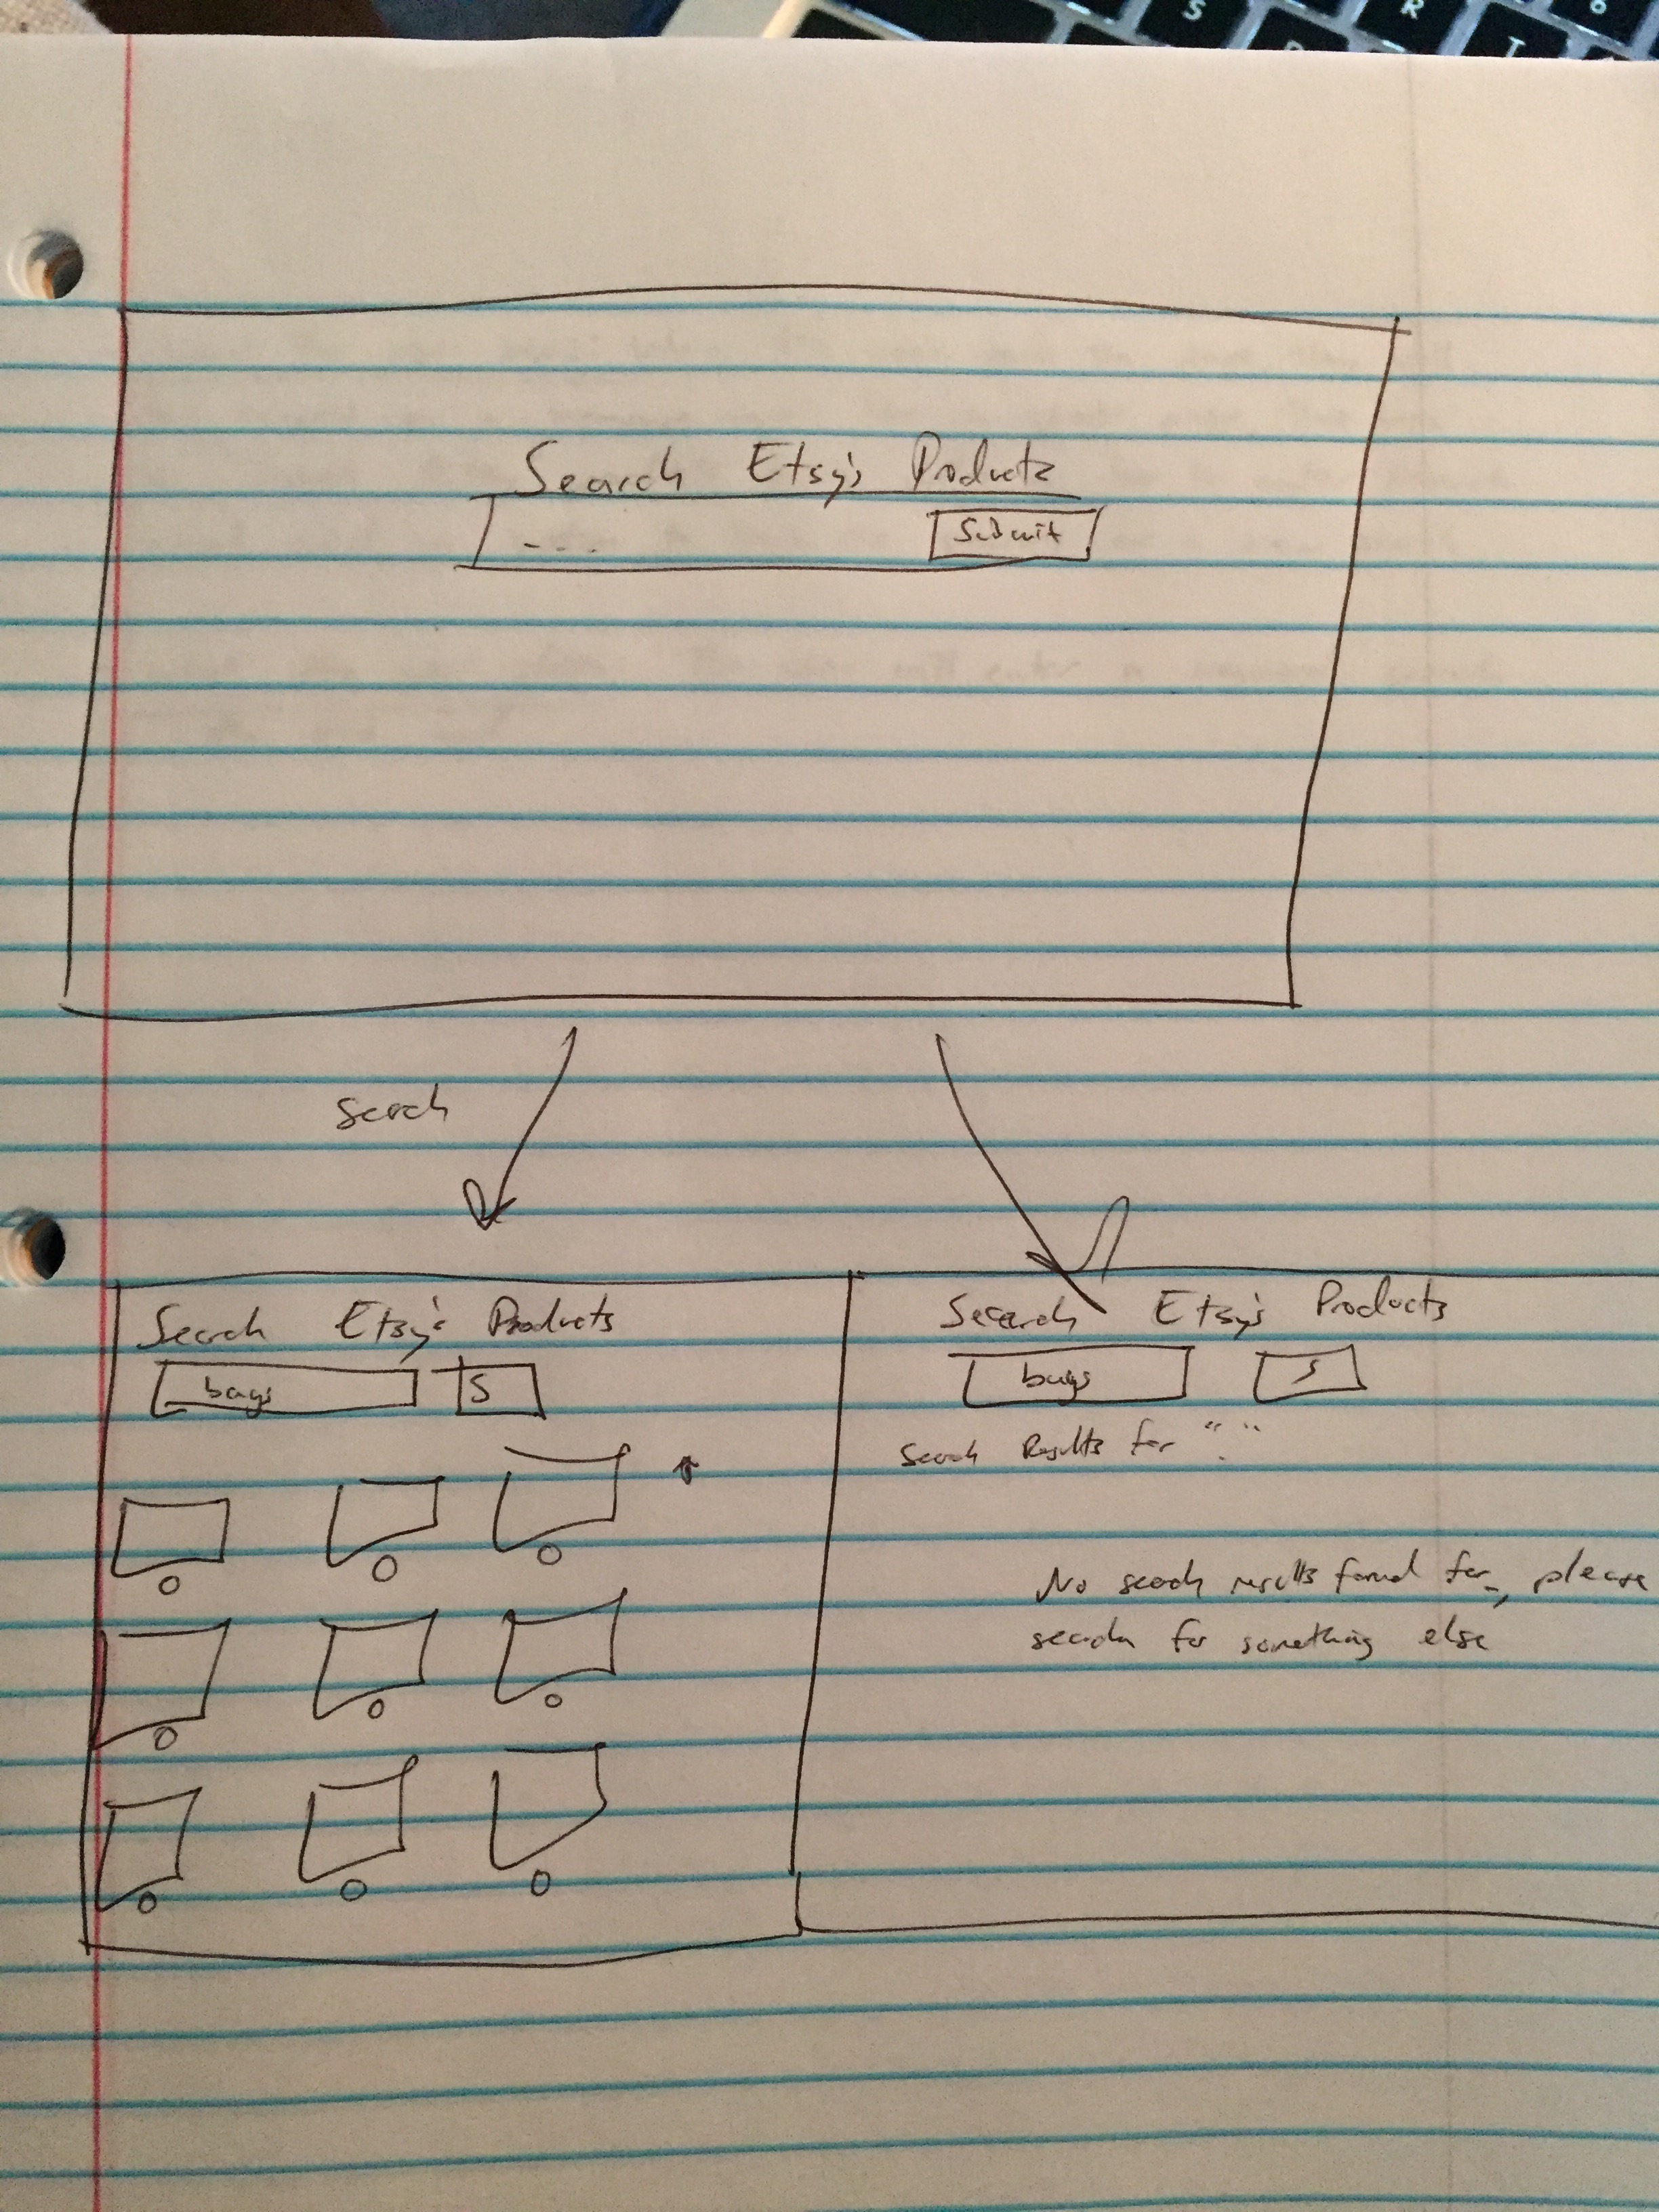 S R 6
D T
Search Etsy's Products
--- Submit
Serch
Search Etsy's Products
bags S
Search Etsy's Products
bags S
Search Results for " "
No search results found for _, please
search for something else